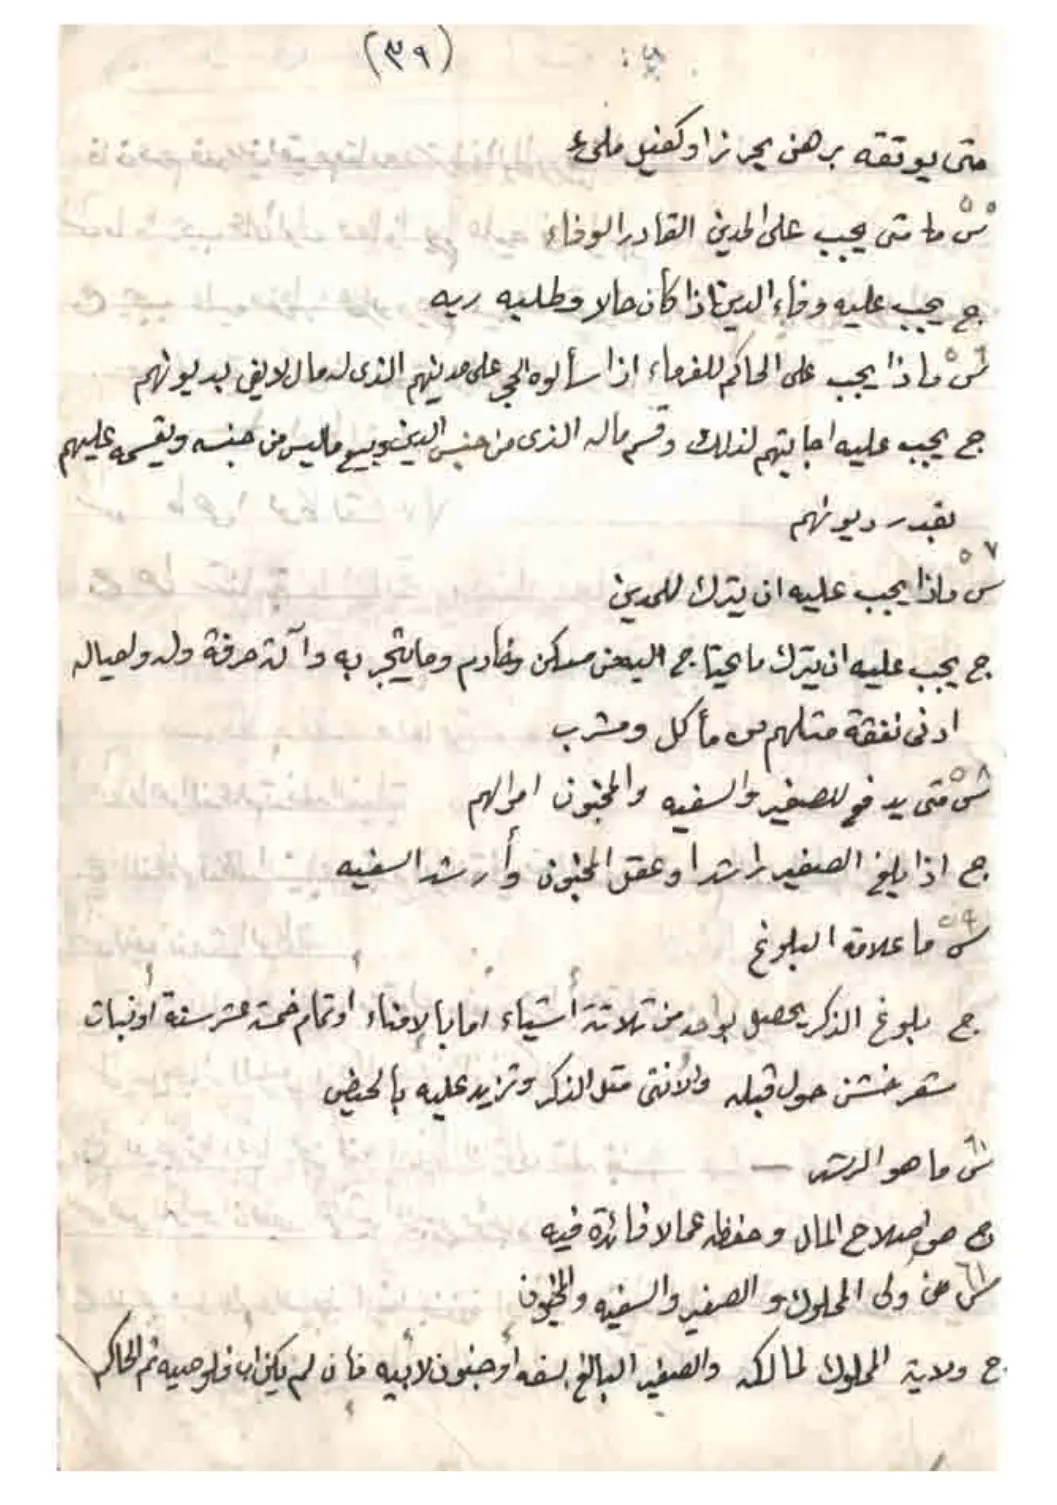 (٣٩)
متى يوثقه برهن يحرز او كفيل ملىء
س٥٥ ما متى يجب على المدين القادر الوفاء
ج يجب عليه وفاء الدين اذا كان حالا وطلبه ربه
س٥٦ ماذا يجب على الحاكم للغرماء اذا سألوه الحجر على مدينهم الذى له مال لا يفى بديونهم
ج يجب عليه اجابتهم لذلك وقسم ماله الذى من جنس الدين وبيع ماليس من جنسه ويقسمه عليهم
بقدر ديونهم
س٥٧ ماذا يجب عليه ان يترك للمدين
ج يجب عليه ان يترك ما يحتاج اليه من مسكن وخادم وما يتجر به وآلة حرفة وله ولعياله
ادنى نفقة مثلهم من مأكل ومشرب
س٥٨ متى يدفع للصغير والسفيه والمجنون اموالهم
ج اذا بلغ الصغير راشدا وعقل المجنون وأرشد السفيه
س٥٩ ما علامة البلوغ
ج بلوغ الذكر يحصل بواحد من ثلاثة أشياء اما بالإمناء أوتمام خمسة عشر سنة أونبات
شعر خشن حول قبله والأنثى مثل الذكر وتزيد عليه بالحيض
س ما هو الرشد
ج هو اصلاح المال وحفظه عما لا فائدة فيه
س٦١ من ولى المملوك و الصغير والسفيه والمجنون
ج ولاية المملوك لمالكه والصغير البالغ بسفه أوجنون لأبيه فان لم يكن اب فلوصيه ثم الحاكم